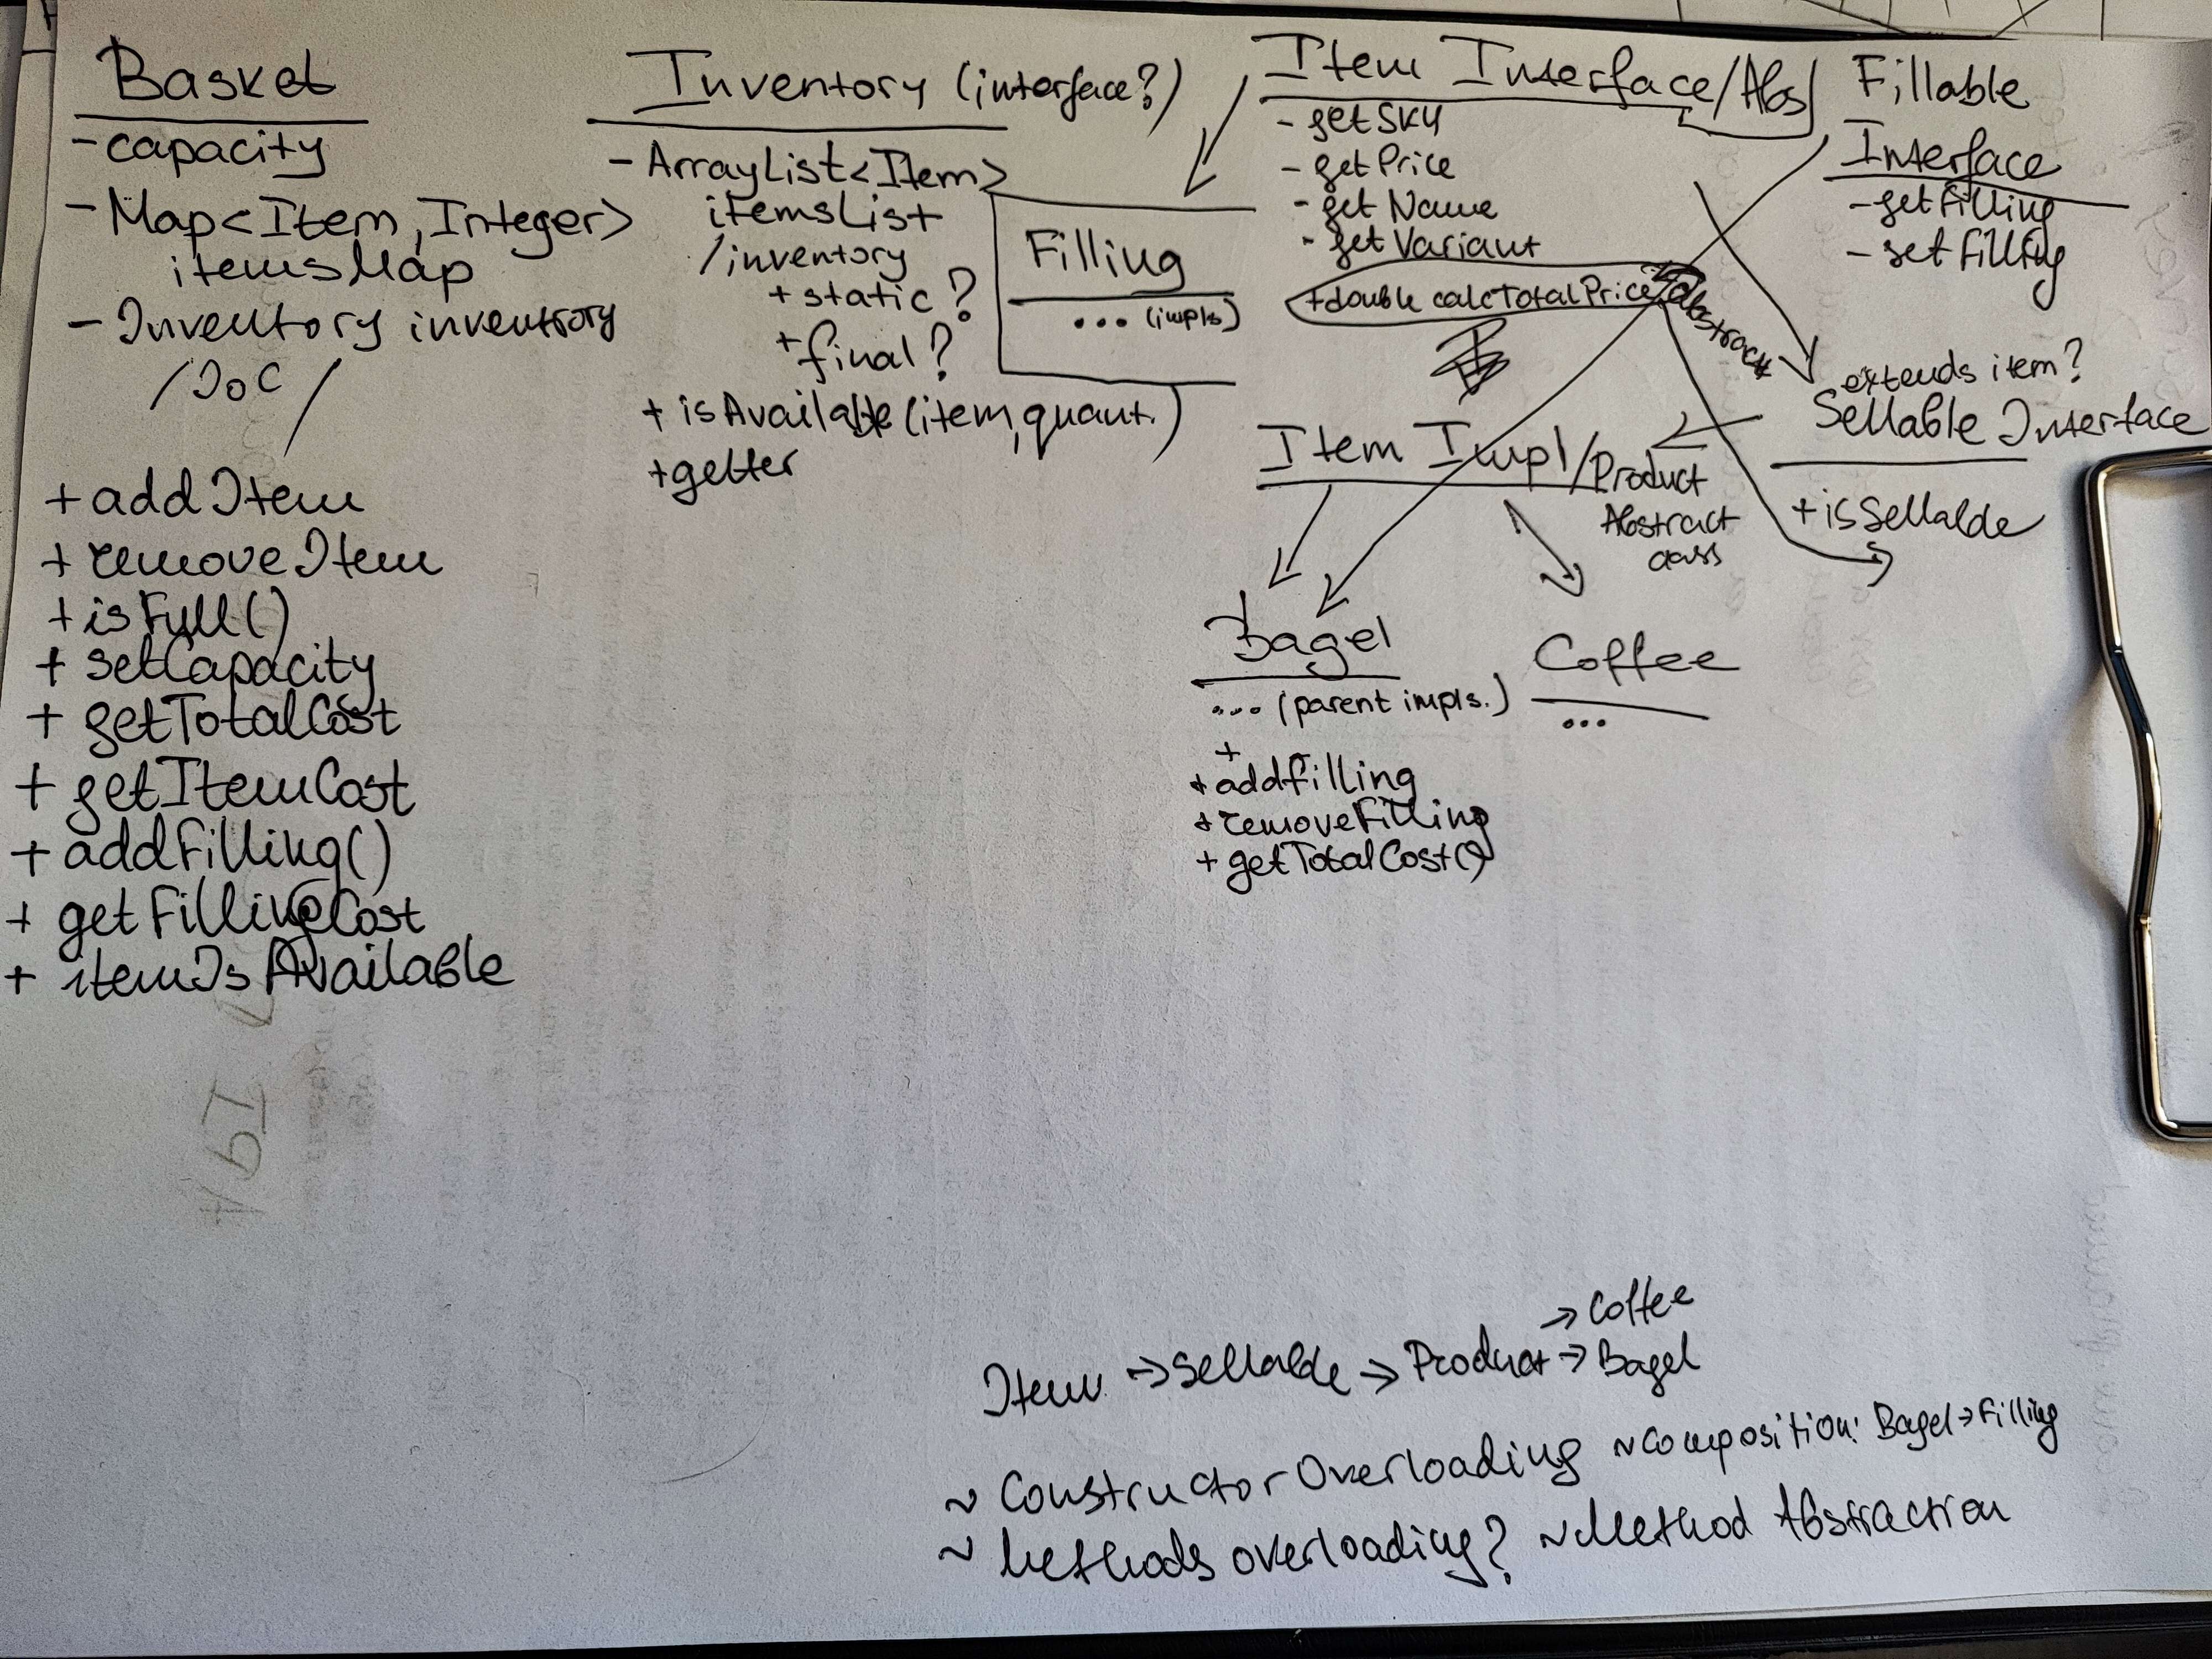 Basket
- capacity
- Map<Item, Integer>
itemsMap
- Inventory inventory
/IoC /
+ addItem
+ removeItem
+ isFull()
+ setCapacity
+ getTotalCost
+ getItemCost
+ addFilling()
+ getFillingCost
+ itemIsAvailable
Inventory (interface?)
- ArrayList<Item>
itemsList
/inventory
+ static?
+ final?
+ isAvailable(item, quant.)
+ getter
Filling
... (impls)
Item Interface/Abs
- getSKU
- getPrice
- getName
- getVariant
+ double calcTotalPrice
abstract
Fillable
Interface
- getFilling
- setFilling
extends item?
Sellable Interface
+ isSellable
Item Impl/Product
Abstract
class
Bagel
... (parent impls.)
+
+ addFilling
+ removeFilling
+ getTotalCost()
Coffee
...
→ Coffee
Item → Sellable → Product → Bagel
~ Constructor Overloading ~ Composition: Bagel → Filling
~ Methods overloading? ~ Method Abstraction